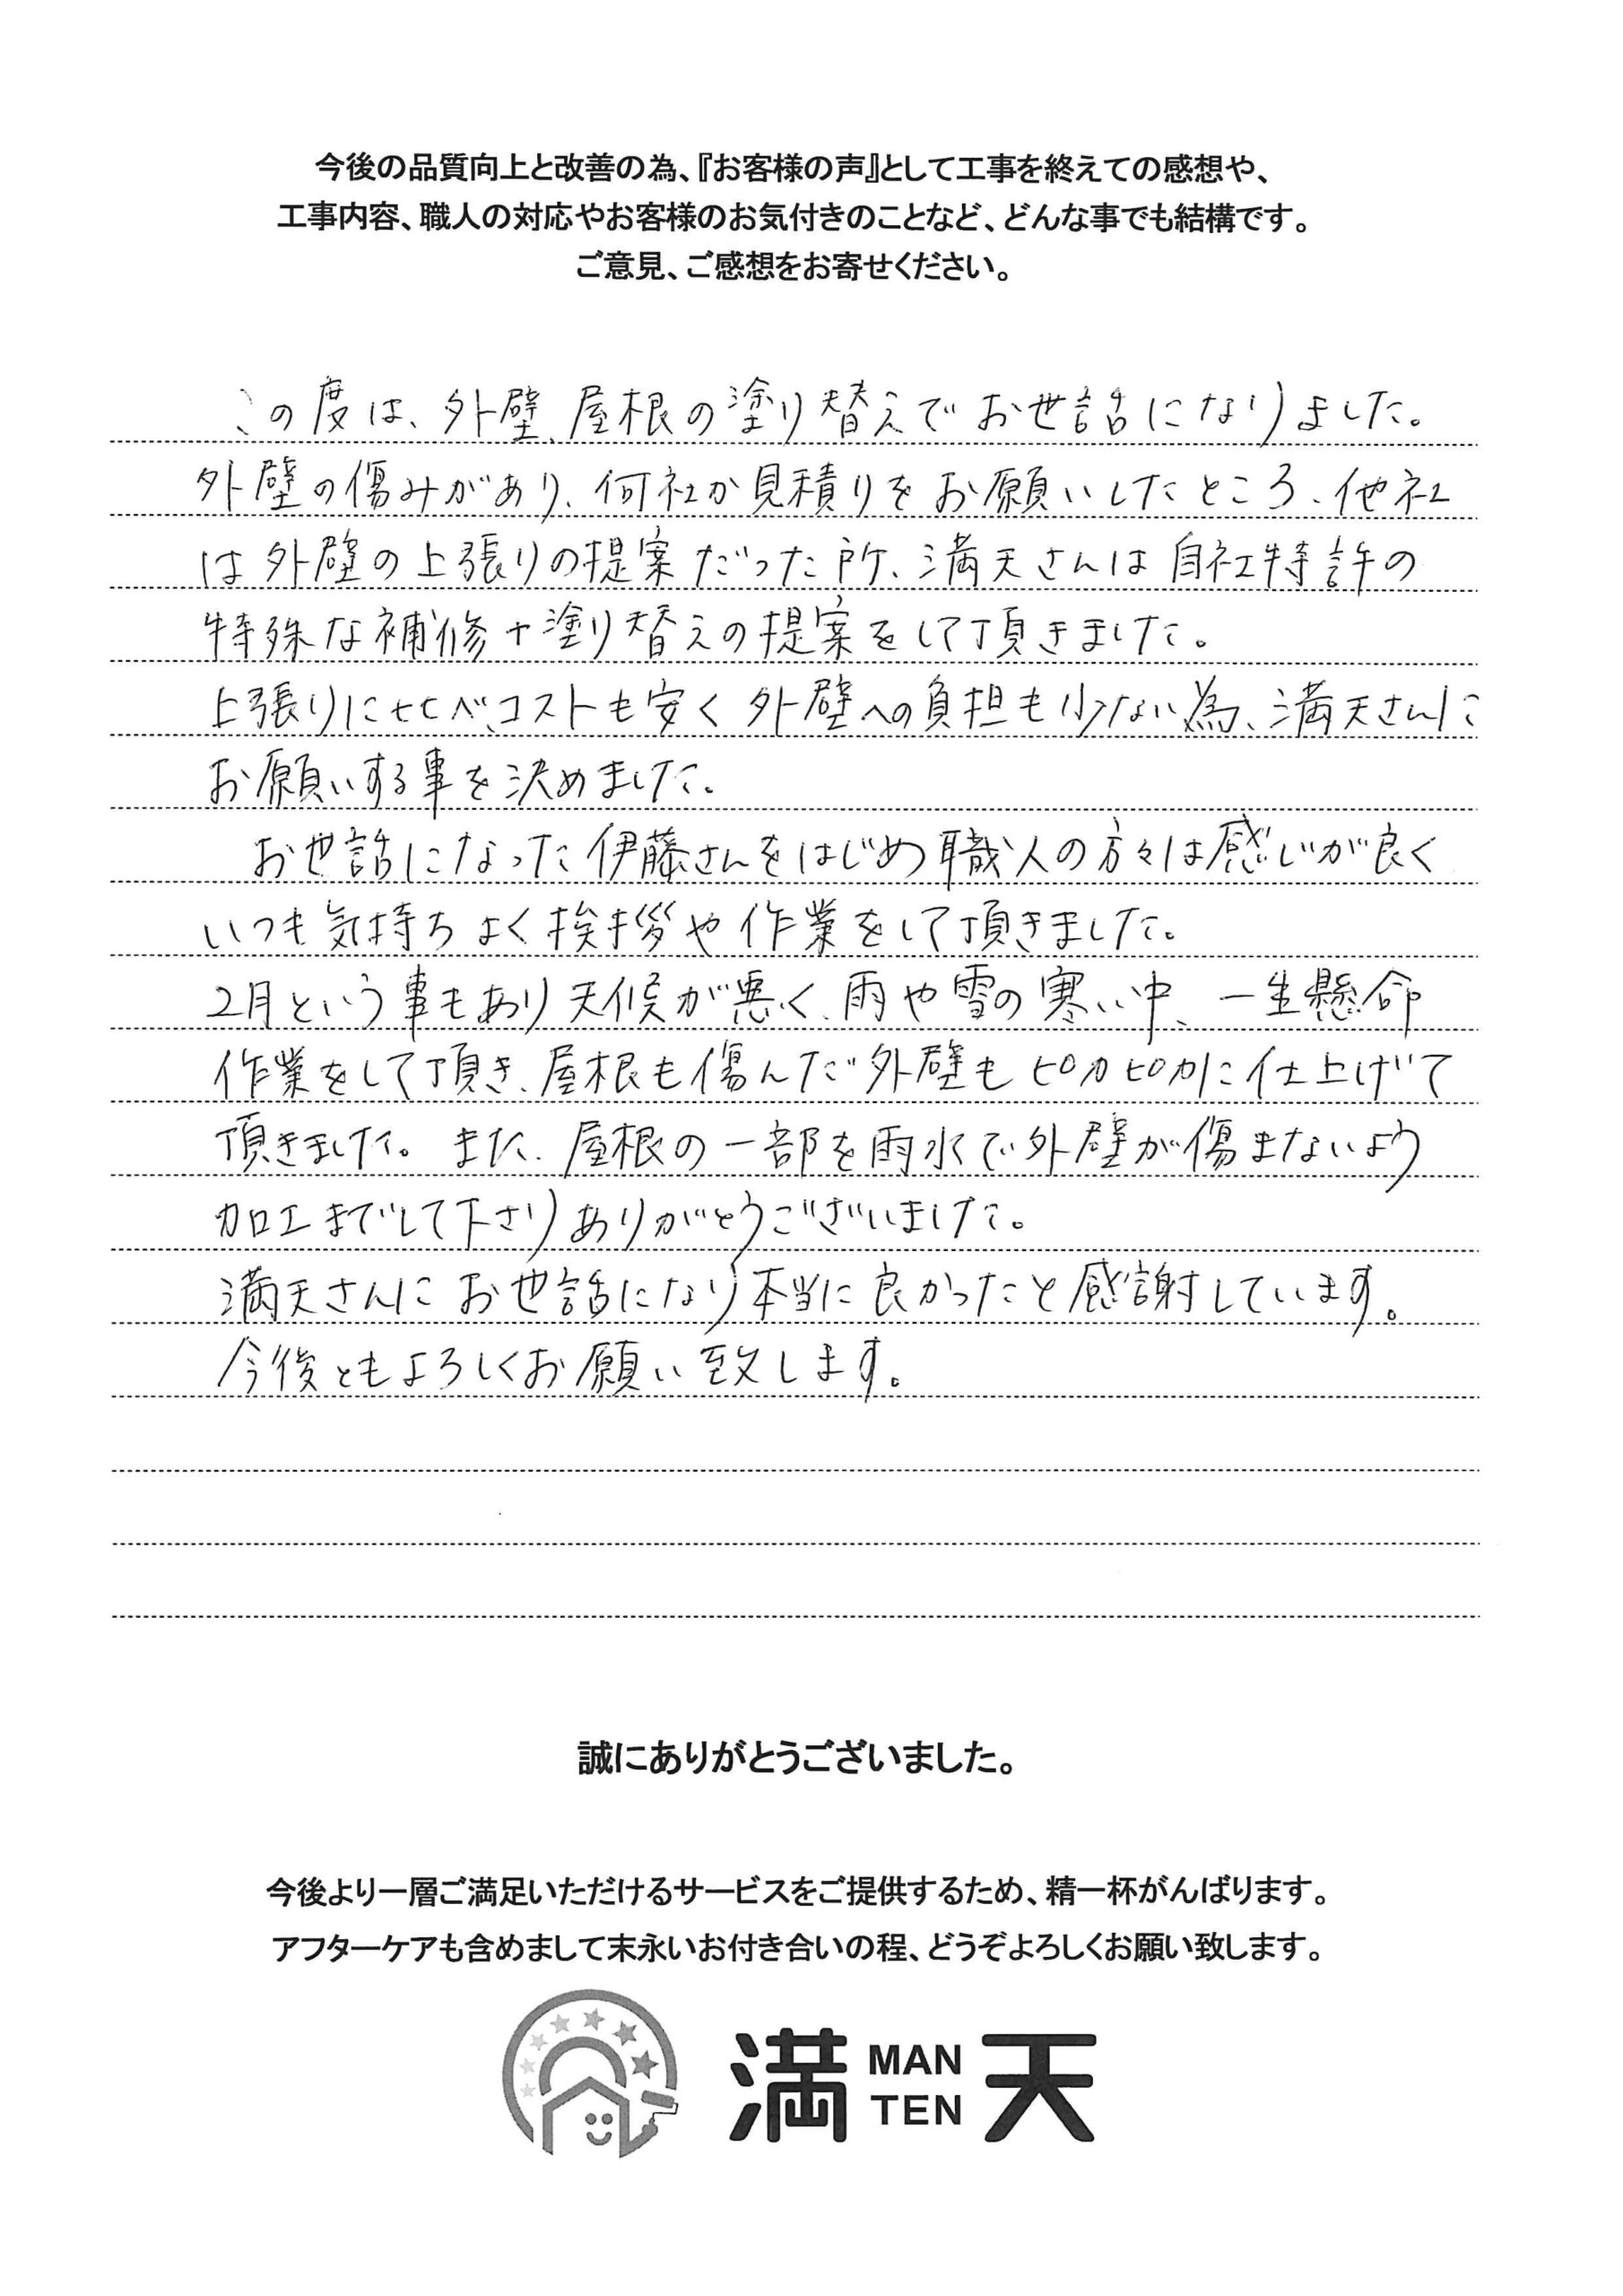 今後の品質向上と改善の為、『お客様の声』として工事を終えての感想や、
工事内容、職人の対応やお客様のお気付きのことなど、どんな事でも結構です。
ご意見、ご感想をお寄せください。
この度は、外壁、屋根の塗り替えでお世話になりました。
外壁の傷みがあり、何社か見積りをお願いしたところ、他社
は外壁の上張りの提案だった所、満天さんは自社特許の
特殊な補修+塗り替えの提案をして頂きました。
上張りに比べ、コストも安く外壁への負担も少ない為、満天さんに
お願いする事を決めました。
お世話になった伊藤さんをはじめ職人の方々は感じが良く
いつも気持ちよく挨拶や作業をして頂きました。
2月という事もあり天候が悪く、雨や雪の寒い中、一生懸命
作業をして頂き、屋根も傷んだ外壁もピカピカに仕上げて
頂きました。また、屋根の一部を雨水で外壁が傷まないよう
加工までして下さりありがとうございました。
満天さんにお世話になり本当に良かったと感謝しています。
今後ともよろしくお願い致します。
誠にありがとうございました。
今後より一層ご満足いただけるサービスをご提供するため、精一杯がんばります。
アフターケアも含めまして末永いお付き合いの程、どうぞよろしくお願い致します。
満 MAN TEN 天